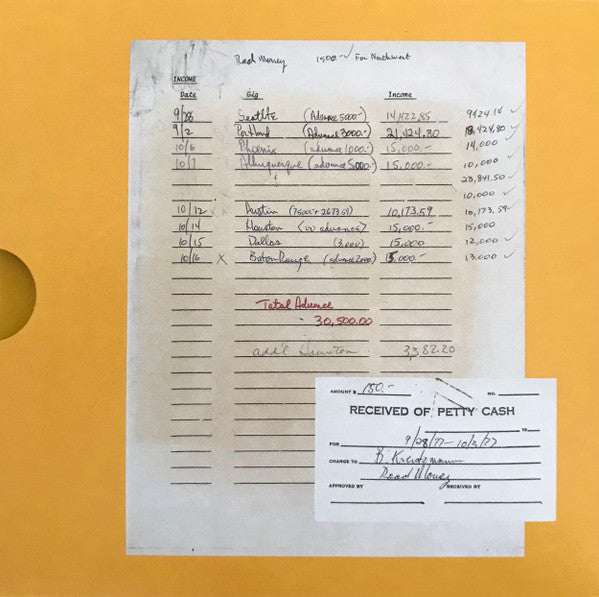 Road Money 1500- ✓ For Northwest
INCOME
Date Gig Income
9/28 Seattle (Advance 5000-) 14,422.85 9424.14 ✓
9/2 Portland (Advance 3000.-) 21,424.80 18,424.80 ✓
10/6 Phoenix (advance 1000.-) 15,000.- 14,000
10/7 Albuquerque (advance 5000.-) 15,000.- 10,000
28,841.50 ✓
10,000 ✓
10/12 x Austin (7500 + 2673.59) 10,173.59 10,173.59 ✓
10/14 Houston (no advance) 15,000.- 15,000
10/15 Dallas (3,000) 15,000 12,000 ✓
10/16 X Baton Rouge (advance 2000) 15,000.- 13,000 ✓
Total Advance
- 30,500.00
add'l Houston 3382.20
AMOUNT $ 150.- NO.
RECEIVED OF PETTY CASH
19
FOR 9/28/77-10/3/77
CHARGE TO B. Kreutzmann
Road Money
APPROVED BY RECEIVED BY